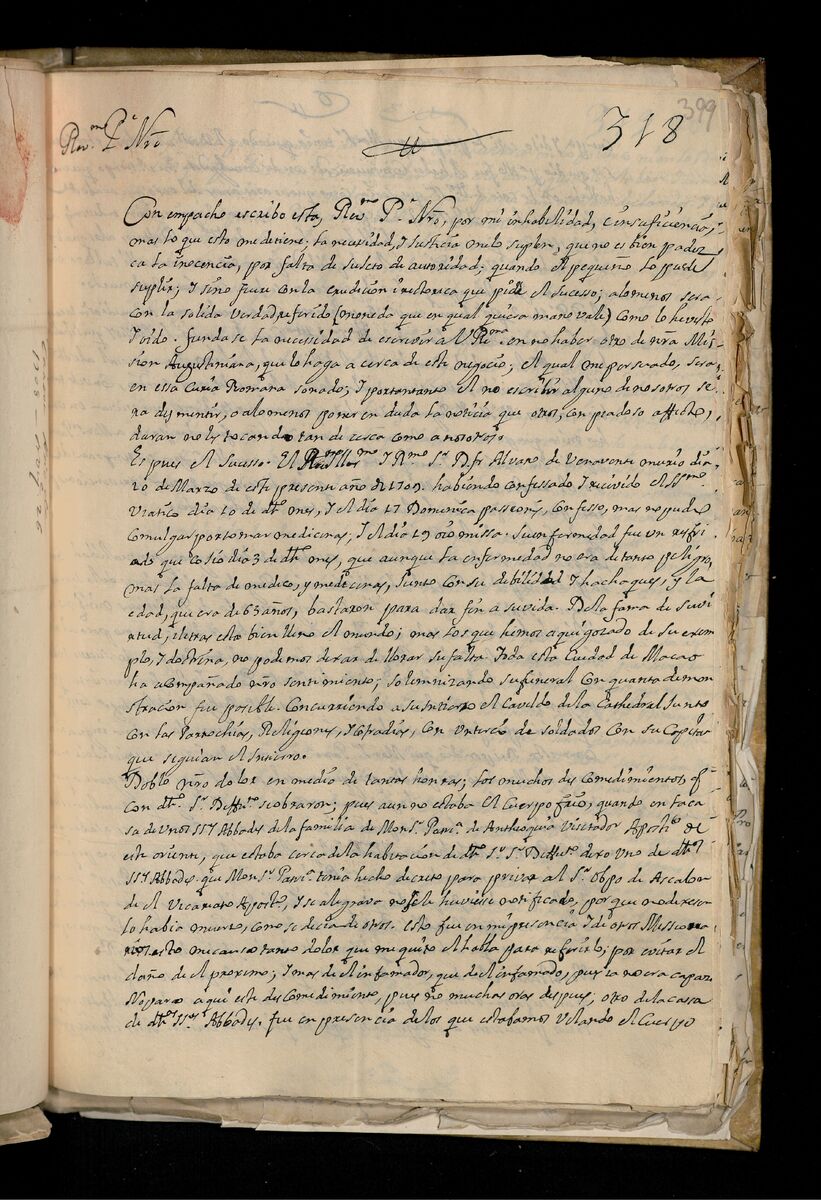 399
318
Rev.mo P.e Nrō
Con empacho escribo esta, Rev.mo P.e Nrō, por mi inhabilidad, e insuficiencia,
mas lo que esto me detiene; la necesidad, I Justicia me lo suplen, que no es bien padez
ca la inocencia, por falta de sujeto de autoridad; quando el pequeño lo puede
suplir; I sino fuere con la erudicion i rectorica que pide el sucesso; alomenos sera
con la solida verdad referido (moneda que en qual quiera mano vale) como lo he visto
I oido. fundase la necessidad de escrevir a V Rma. en no haber otro de nrã Mis
sion Augustiniana, que lo haga a cerca de este negocio; el qual me persuado, sera
en essa Curia Romana sonado; I por tanto el no escribir alguno de nosotros se
ra desmentir, o alomenos poner en duda la noticia que otros, con piadoso affecto,
daran no les tocando tan de cerca como a nosotros.
Es pues el sucesso. El Illmo I Rmo Sr D. fr Alvaro de Venavente murio dia
20 de Marzo de este presente año de 1709. habiendo confessado I recivido el SSmo
Viatico dia 10 de dho mes, I el dia 17 Dominica passionis, confesso, mas no pudo
comulgar por tomar medicinas, I el dia 19 oio missa. Su enfermedad fue un resfri
ado que cojio dia 3 de dho mes, que aunque la enfermedad no era de tanto peligro
mas la falta de medico, y medicinas, junto con su debilidad I hachaques, y la
edad, que era de 63 años, bastaron para dar fin a su vida. De la fama de su vir
tud, i letras esta bien lleno el mundo; mas los que hemos aqui gozado de su exem
plo, I doctrina, no podemos dexar de llorar su falta. Toda esta Ciudad de Macao
ha acompañado nrõ sentimiento; solemnizando su funeral con quanta demon
stracion fue posible. Concurriendo a su intierro el Cavildo de la Cathedral junto
con las Parrochias, Religiones, I Cofradias, con un tercio de soldados con su Capitan
que seguian el Intierro.
Doblo nrõ dolor en medio de tantas honras; los muchos descomedimientos q̃
con dho Sr Diffto se obraron; pues aun no estaba el cuerpo frio, quando en la ca
sa de unos SSrs Abbades de la familia de Monsr Patrca de Anthioquia Visitador Appco de
este oriente, que estaba cerca de la habitacion de dho Sr Sr Diffuto dixo uno de dhos
SSrs Abbades. que Monsr Patrca tenia hecho decreto para privar al Sr Obpo de Ascalon
de el Vicariato Apostco, I se alegrava no se le huviese notificado, por que no dixesen
lo habia muerto, como se decia de otros. Esto fue en mi presencia I de otros Missiona
rios. esto me causo tanto dolor que me quito el habla para referirlo; por evitar el
daño de el proximo; I mas de el infamador, que de el infamado, pues ia no era capaz.
No paro aqui este descomedimiento, pues no muchas oras despues, otro de la cassa
de dhos SSres Abbades. fue en presencia de los que estabamos velando el Cuerpo